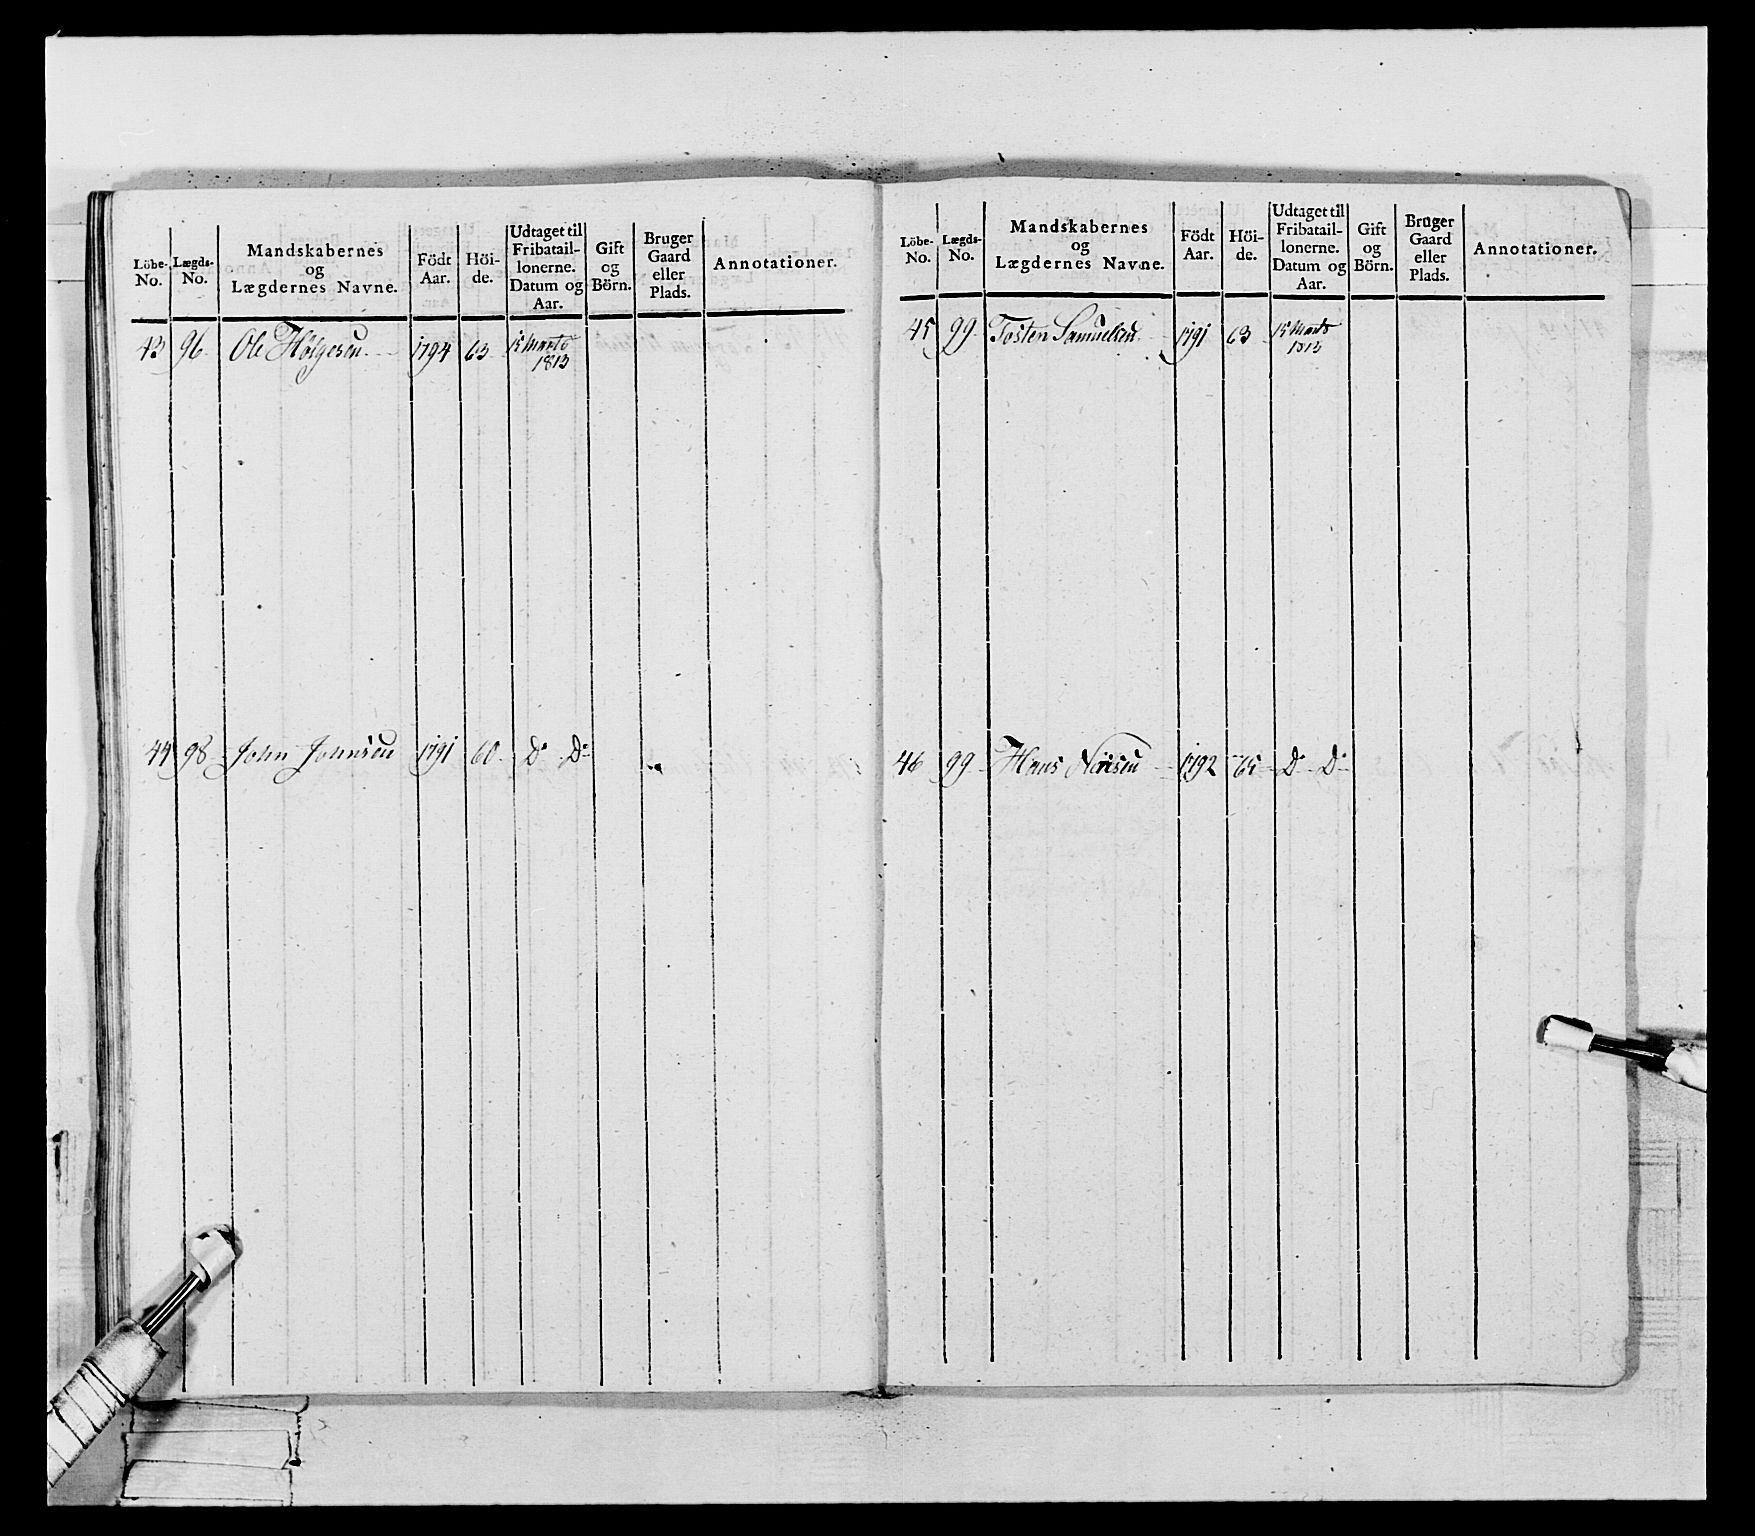 Löbe- No. | Lægds- No. | Mandskabernes og Lægdernes Navne. | Födt Aar. | Höi- de. | Udtaget til Fribatail- lonerne. Datum og Aar. | Gift og Börn. | Bruger Gaard eller Plads. | Annotationer.
43 96 Ole Hølgesen 1794 63 15 Marts
1813
44 98 John Johnsen 1791 60 Do Do
Löbe- No. | Lægds- No. | Mandskabernes og Lægdernes Navne. | Födt Aar. | Höi- de. | Udtaget til Fribatail- lonerne. Datum og Aar. | Gift og Börn. | Bruger Gaard eller Plads. | Annotationer.
45 99 Tosten Samuelsen 1791 63 15 Marts
1813
46 99 Hans Nielsen 1792 65 Do Do